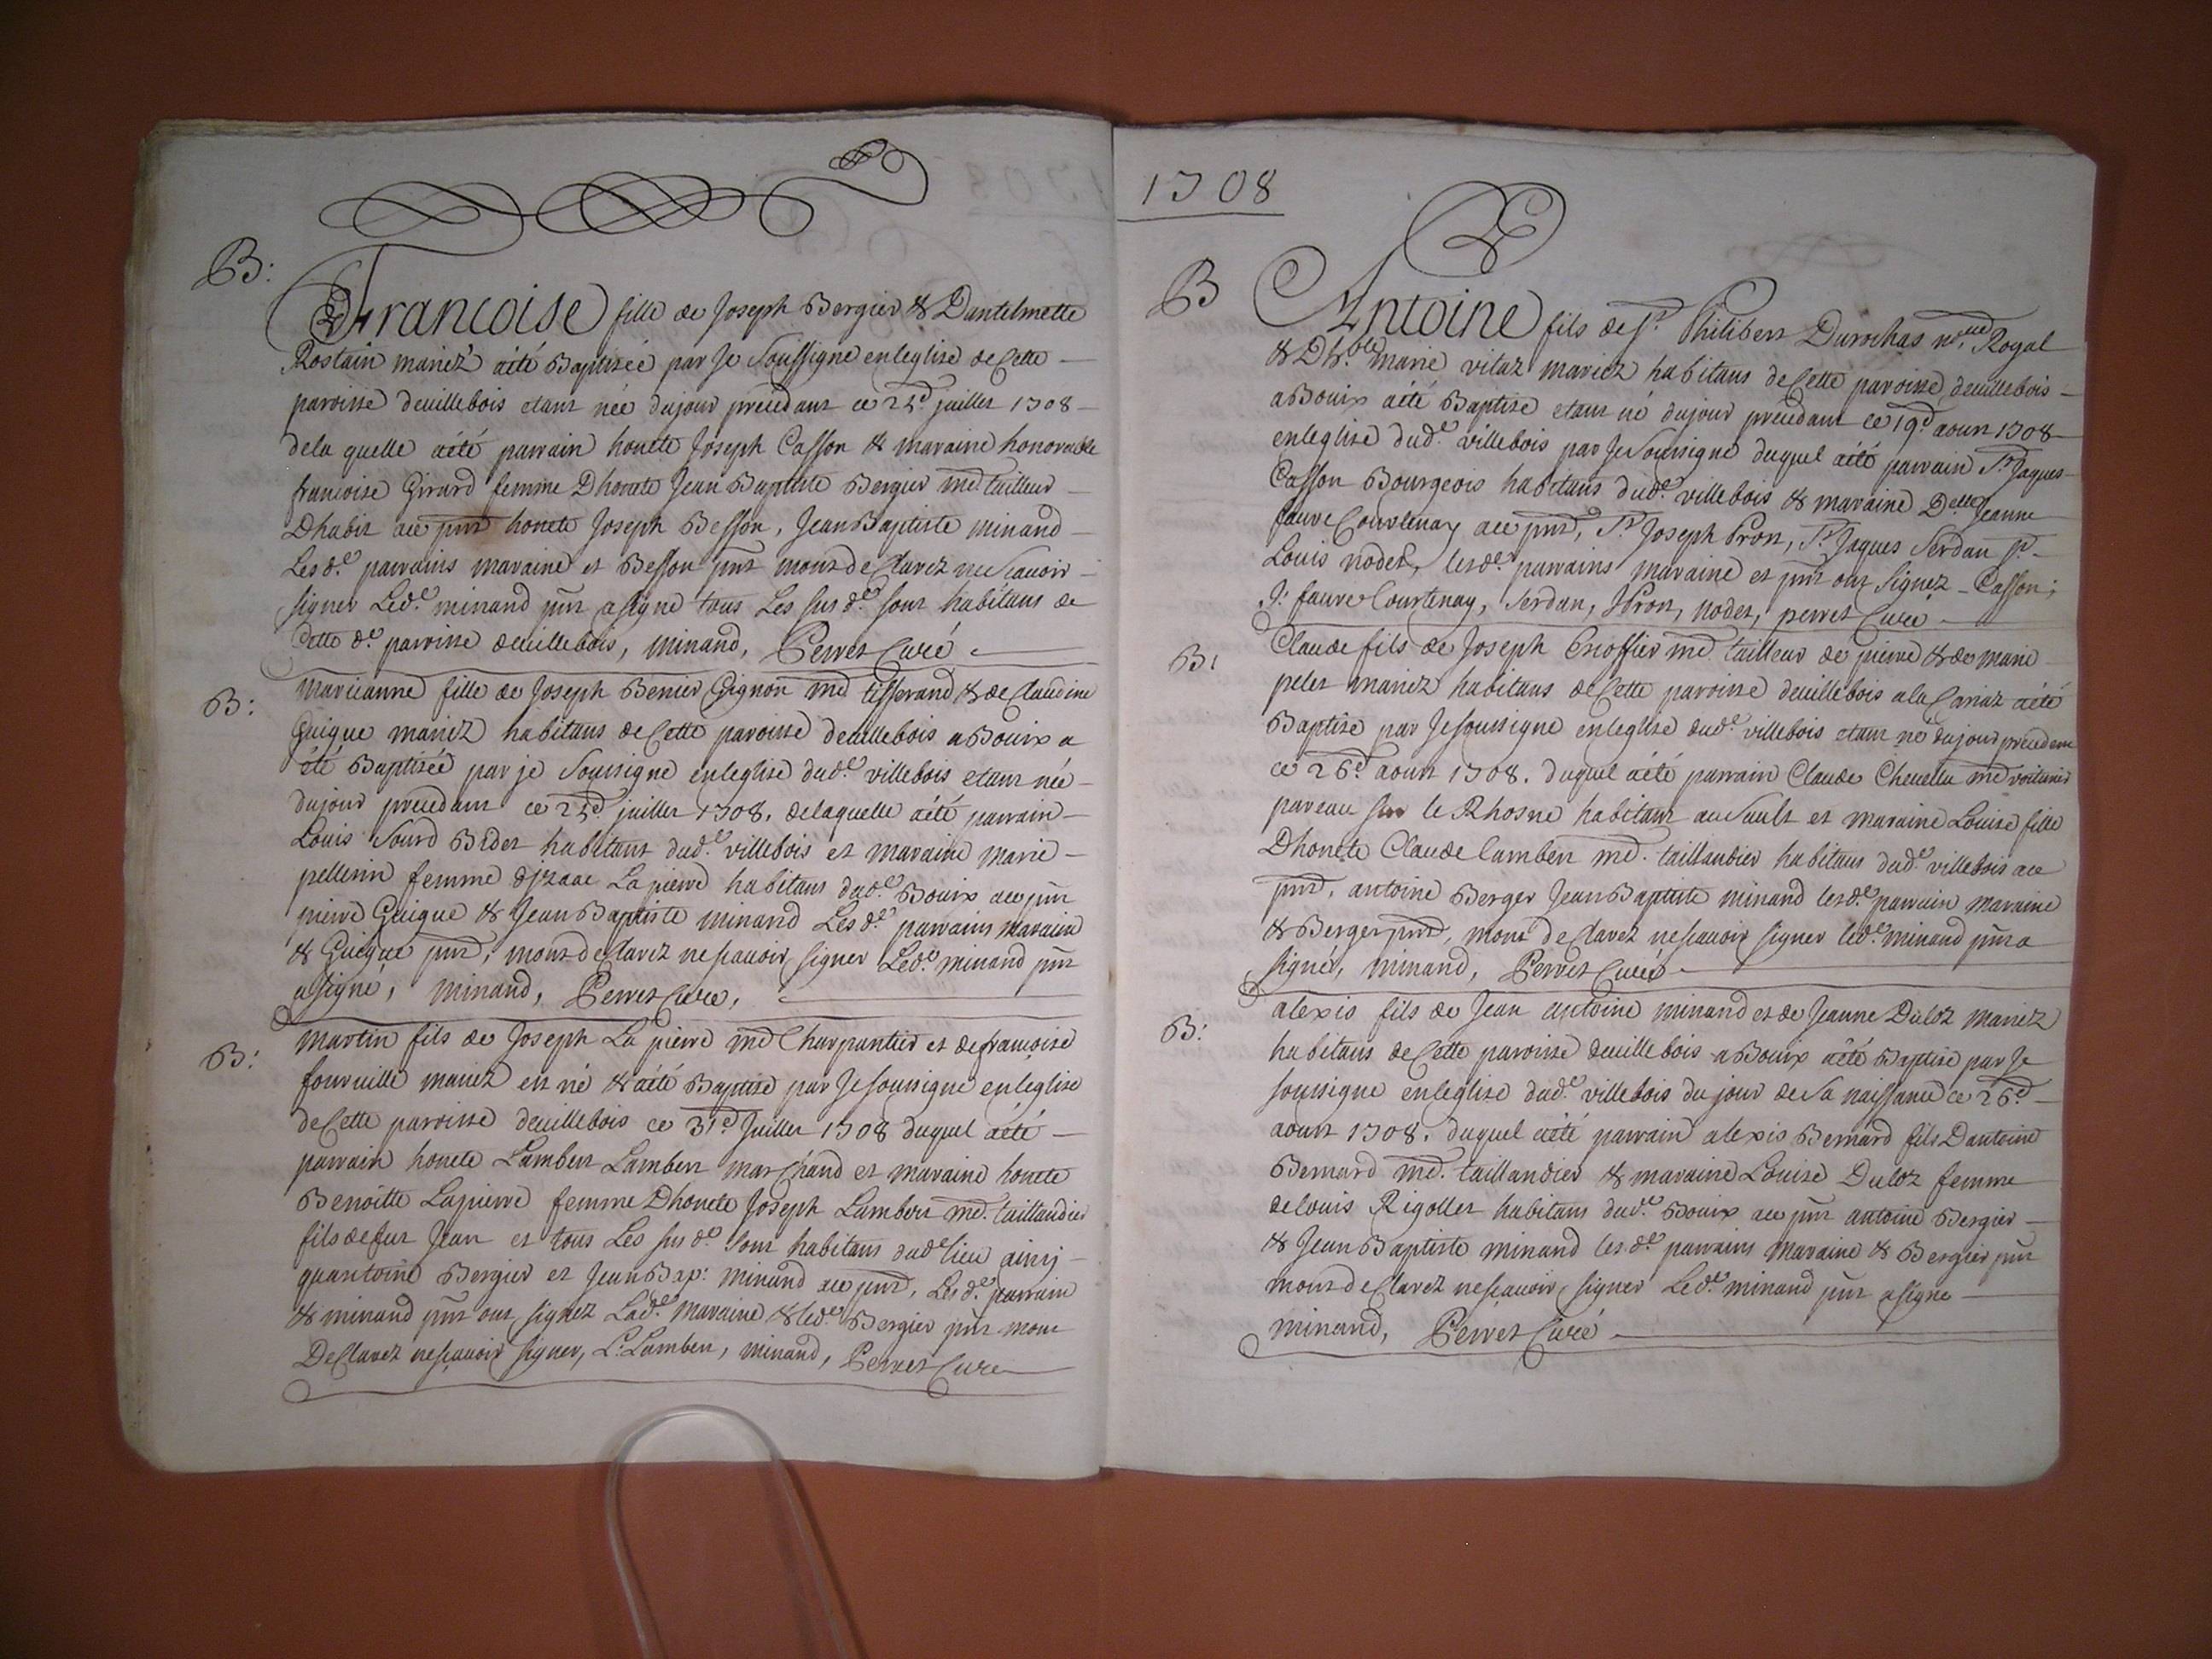 B:
Francoise fille de Joseph Bergier & Dantelmette
Rostain mariez a été Baptisée par Je Soussigné en leglise de Cette
paroisse deuillebois etant née du jour precedant ce 25.d juillet 1708
de la quelle a été parrain honete Joseph Casson & maraine honorable
francoise Girard femme Dhonete Jean Baptiste Bergier md. tailleur
Dhabit au pnt honete Joseph Besson, Jean Baptiste minand
Les d.e parrains maraine et Besson pnt mont declarez ne scauoir
signer Led.e minand pnt a signé tous Les sus d.e sont habitans de
Cette d.e paroisse deuillebois, minand, Perret Curé
B:
marieanne fille de Joseph Benier Gignon md tisserand & de Claudine
Guigue mariez habitans de Cette paroisse deuillebois a Bouix a
été Baptisée par je Soussigné en leglise dud.e villebois etant née
du jour precedant ce 25.d juillet 1708. de laquelle a été parrain
Louis Sourd Bidet habitant dud.e villebois et maraine marie
pellerin femme djzaac La pierre habitans dud.e Bouix au pnt
pierre Guigue & Jean Baptiste minand Les d.e parrains maraine
& Guigue pnt, mont declarez ne scauoir signer Led.e minand pnt
a signé, minand, Perret Curé,
B:
martin fils de Joseph La pierre md Charpantier et de francoise
fouruille mariez est né & a été Baptisé par Je soussigné en leglise
de Cette paroisse deuillebois ce 31.d Juillet 1708 duquel a été
parrain honete Lambert Lambert marchand et maraine honete
Benoitte Lapierre femme Dhonete Joseph Lambert md. taillandier
fils de fut Jean et tous Les sus d.e sont habitans dud.e lieu ainsj
quantoine Bergier et Jean Bap: minand au pnt, Les d.e parrain
& minand pnt ont signez Lad.e maraine & led.e Bergier pnt mont
Declarez ne scauoir signer, L: Lambert, minand, Perret Curé
1708
B
Antoine fils de Sr. Philibert Durochas nre. Royal
& Dh.ble marie vitaz mariez habitans de Cette paroisse deuillebois
a Bouix a été Baptisé etant né du jour precedant ce 19.d aoust 1708
en leglise dud.e villebois par Je Soussigné duquel a été parrain Sr Jaques
Casson Bourgeois habitans dud.e villebois & maraine D.elle Jeanne
fauvre Courtenay au pnt, Sr Joseph Pron, Sr Jaques Serdan Sr
Louis nodet, les d.e parrains maraine et pnt ont signez Casson;
J: fauvre Courtenay, Serdan, J Pron, nodet, perret Curé
B:
Claude fils de Joseph Crioffier md. tailleur de pierre & de marie
pelet mariez habitans de Cette paroisse deuillebois a la Carriaz a été
Baptisé par Je soussigné en leglise dud.e villebois etant né du jour precedent
ce 26.d aoust 1708. duquel a été parrain Claude Cheuellu md voiturier
par eau sur le Rhosne habitant au Sault et maraine Louise fille
Dhonete Claude Lambert md. taillandier habitans dud.e villebois au
pnt, antoine Berger Jean Baptiste minand les d.e parrain maraine
& Berger pnt, mont declarez ne scauoir signer led.e minand pnt a
signé, minand, Perret Curé
B:
alexis fils de Jean antoine minand et de Jeanne Duloz mariez
habitans de Cette paroisse deuillebois a Bouix a été Baptisé par Je
soussigné en leglise dud.e villebois du jour de sa naissance ce 26.d
aoust 1708. duquel a été parrain alexis Bernard fils Dantoine
Bernard md. taillandier & maraine Louise Duloz femme
de louis Rigollet habitans dud.e Bouix au pnt antoine Bergier
& Jean Baptiste minand les d.e parrains maraine & Bergier pnt
mont declarez ne scauoir signer Led.e minand pnt a signé
minand, Perret Curé